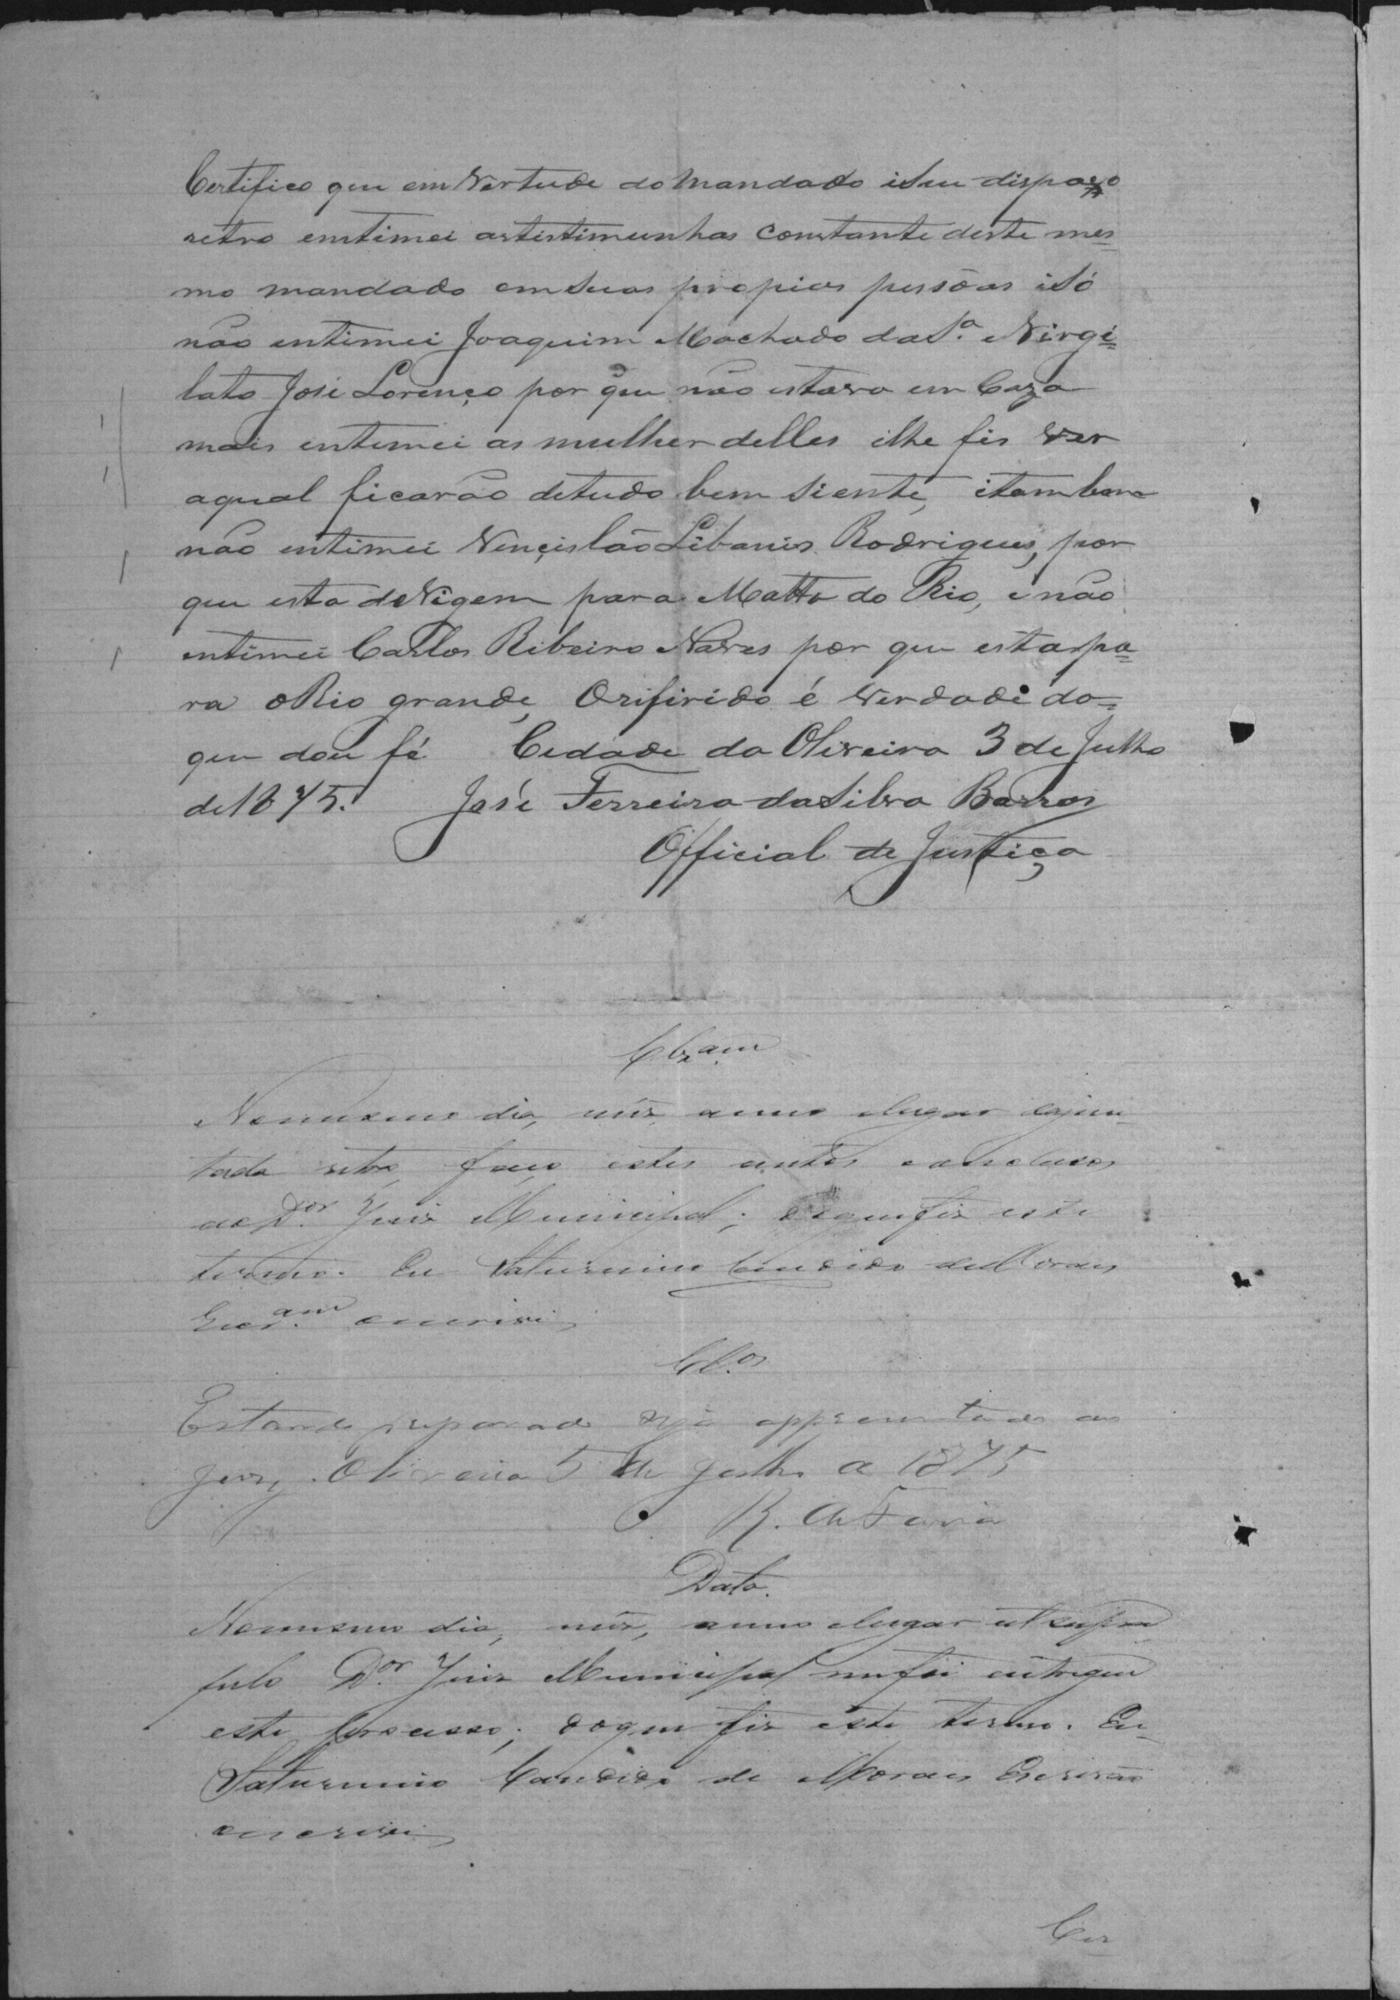 Certifico que em Vertude do Mandado i Seu dispaxo
retro emtimei as tistimunhas Constante deste mes=
mo mandado em Suas propias pessôas i Só
não entimei Joaquim Machado da S.ª e Virgi=
lato José Lorenço por que não estava em Caza
mais entimei as mulher delles i lhe fis ver
aqual ficarão de tudo bem Siente, i tambem
não entimei Vençislão Libanio Rodrigues, por
que esta de Vigem para Matto do Rio, e não
entimei Carlos Ribeiro Naves por que esta pa=
ra o Rio grande, O rifirido é Verdade do=
que dou fé Cidade da Oliveira 3 de Julho
de 1875. José Ferreira da Silva Barros
Official de Justiça
No mesmo dia, mêz, anno e lugar da jun-
tada retro, faço estes autos conclusos
ao D.or Juiz Municipal; do que fiz este
termo. Eu Saturnino Candido de Moraes
Escr.am o escrivi
Cl.os
Estando preparado seja appresentado ao
jury. Oliveira 5 de Julho de 1875
R. de Faria
Data.
No mesmo dia, mêz, anno e lugar ut supra
pelo D.or Juiz Municipal me foi entregue
este Processo; do que fiz este termo. Eu
Saturnino Candido de Moraes Escrivão
o escrivi
Cer